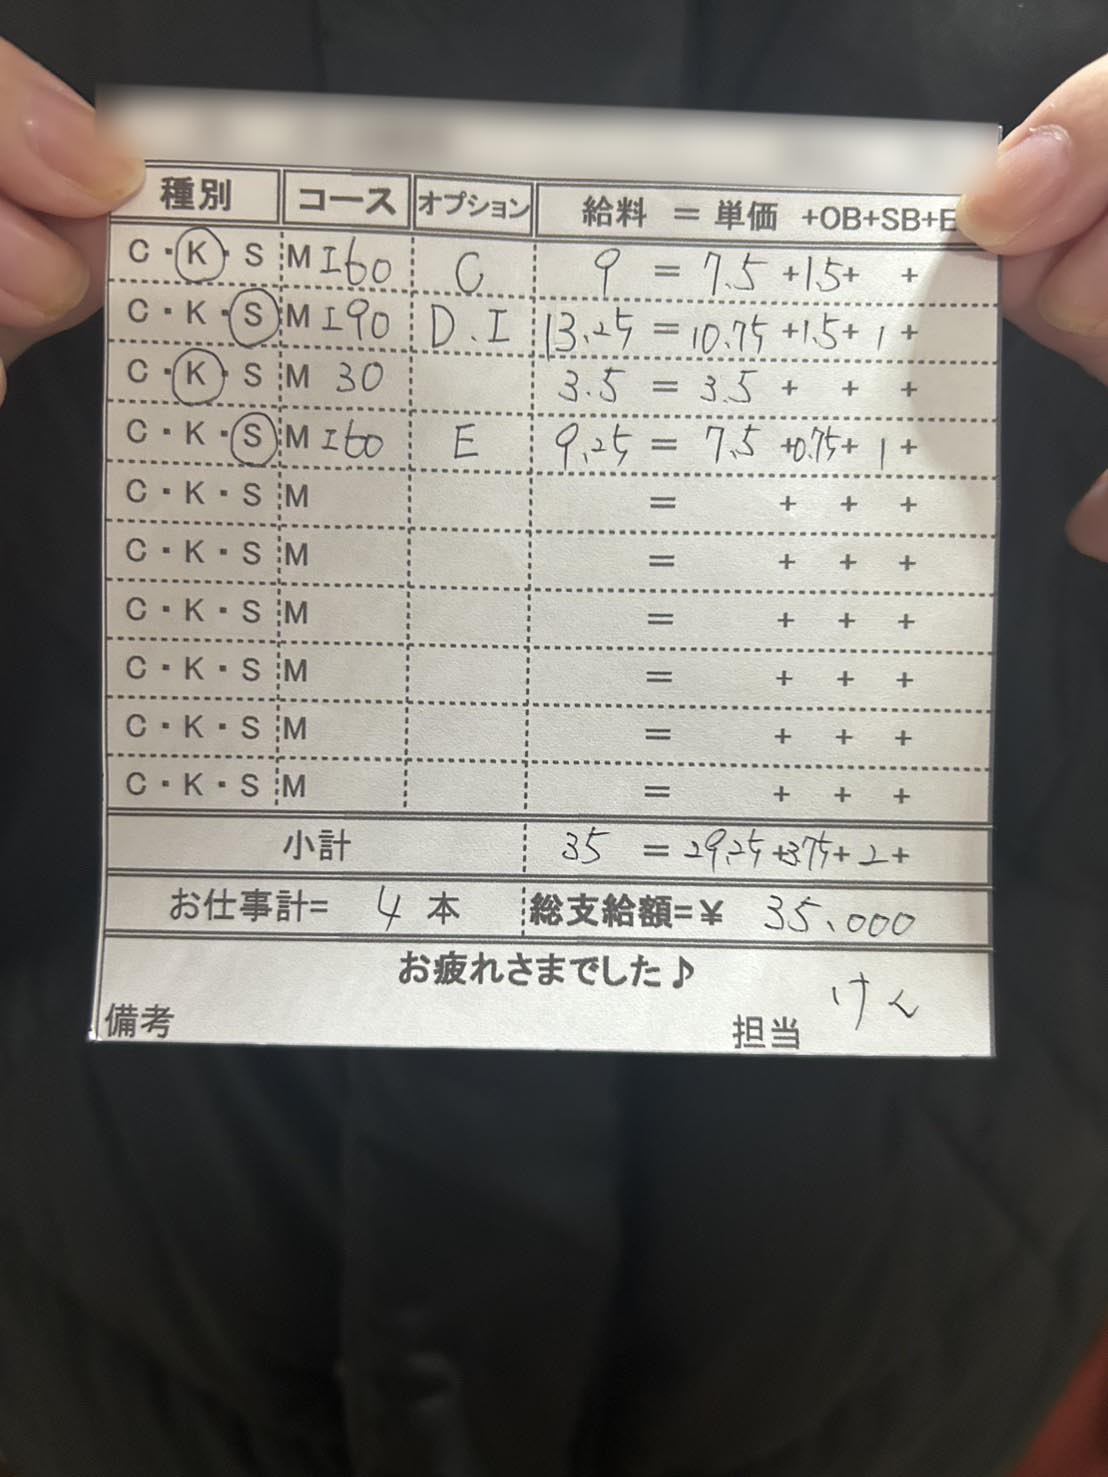 種別 コース オプション 給料 = 単価 +OB+SB+E
C・K・S M I60 C 9 = 7.5 +1.5+ +
C・K・S M I90 D.I 13.25 = 10.75 +1.5+ 1 +
C・K・S M 30 3.5 = 3.5 + + +
C・K・S M I60 E 9.25 = 7.5 +0.75+ 1 +
C・K・S M = + + +
C・K・S M = + + +
C・K・S M = + + +
C・K・S M = + + +
C・K・S M = + + +
C・K・S M = + + +
小計 35 = 29.25 +3.75+ 2 +
お仕事計= 4 本 総支給額=¥ 35.000
お疲れさまでした♪
備考 担当 けん